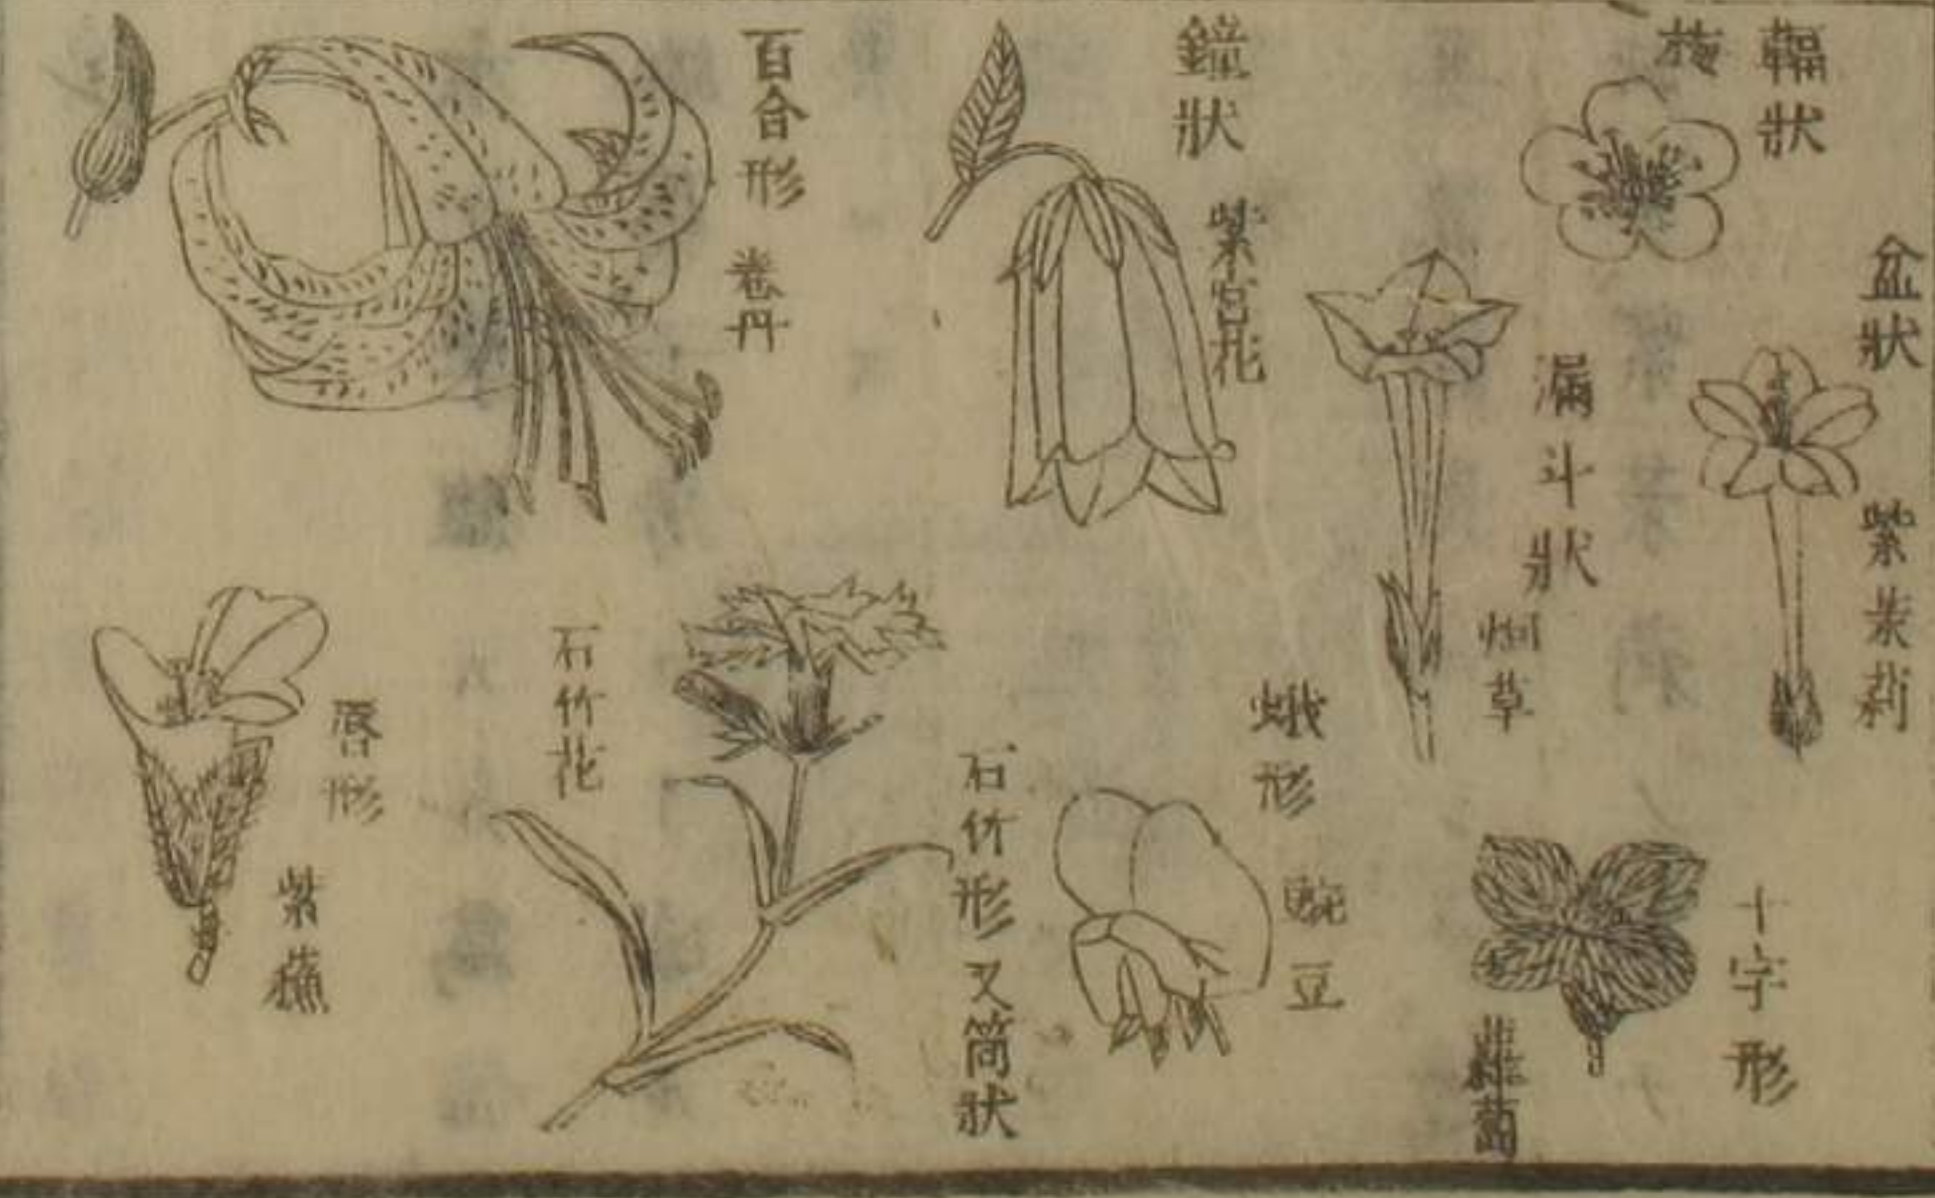 輻狀
梅
盆狀
紫茉莉
漏斗狀
烟草
鐘狀
紫宮花
百合形
卷丹
十字形
蘿蔔
蛾形
豌豆
石竹形又筒狀
石竹花
唇形
紫蘓